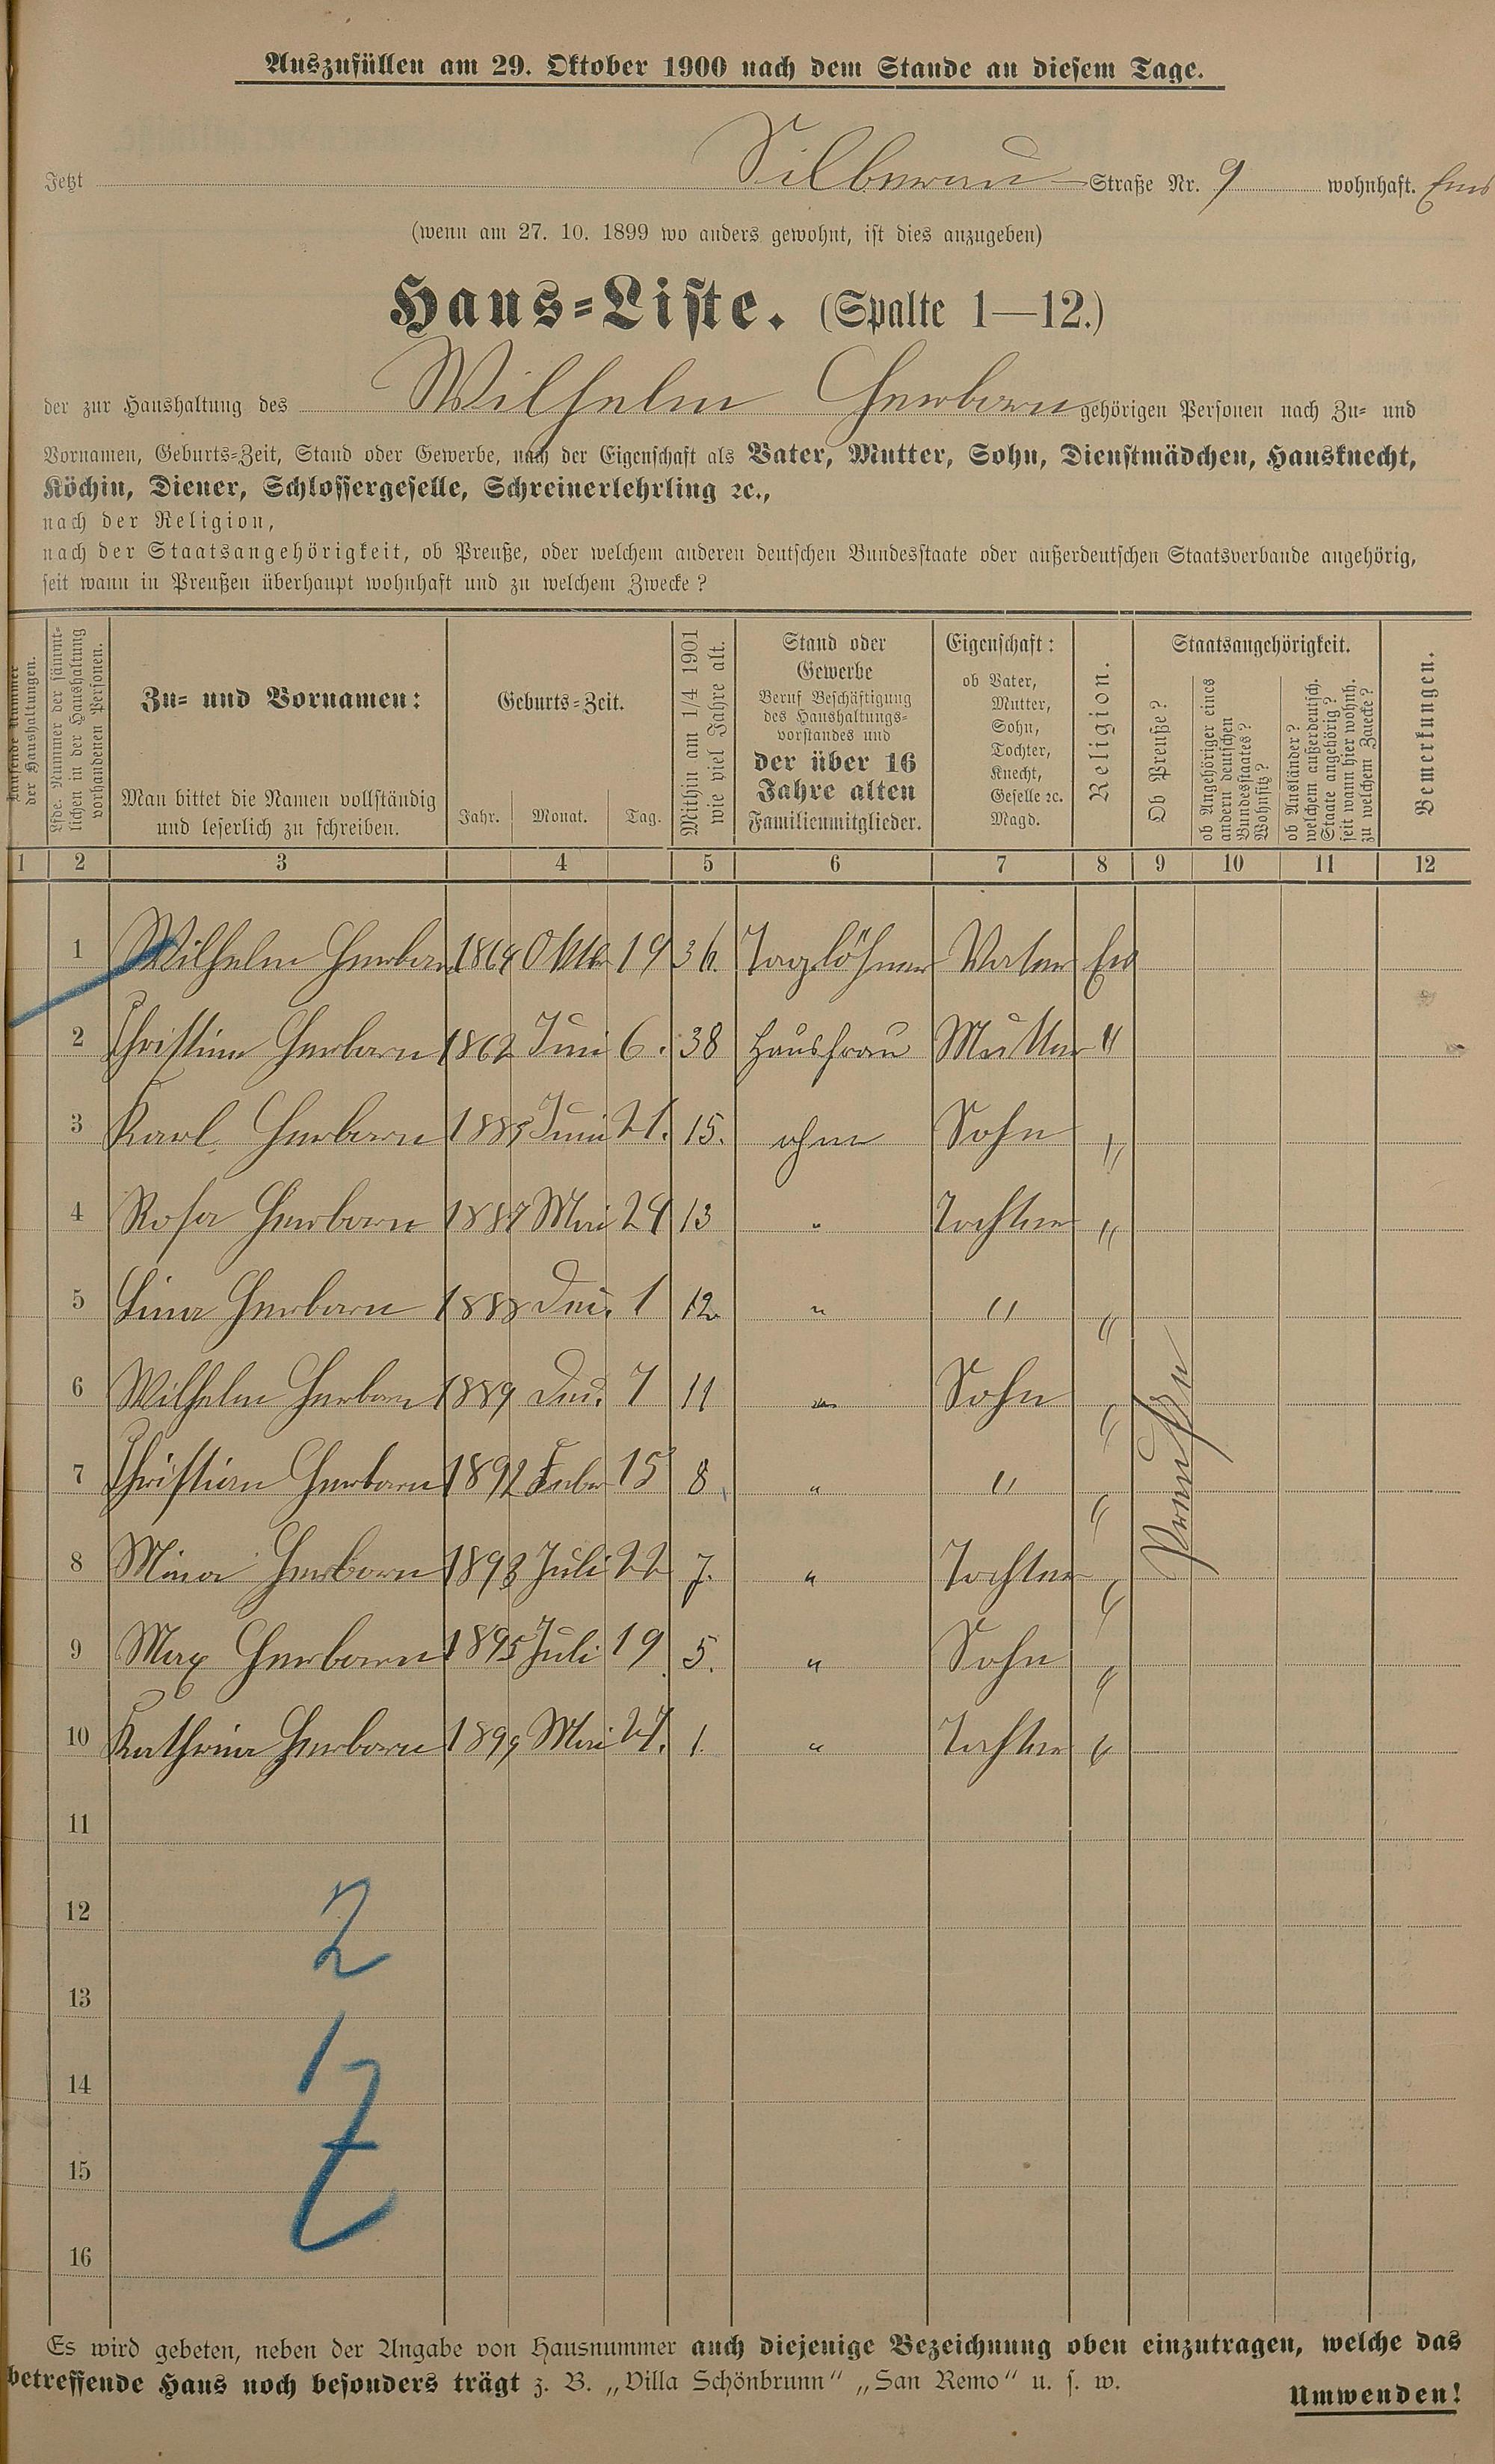 Auszufüllen am 29. Oktober 1900 nach dem Stande an diesem Tage.
Jetzt Silberau Straße Nr. 9 wohnhaft. Ems
(wenn am 27. 10. 1899 wo anders gewohnt, ist dies anzugeben)
Haus-Liste. (Spalte 1—12.)
der zur Haushaltung des Wilhelm Herborn gehörigen Personen nach Zu- und
Vornamen, Geburts-Zeit, Stand oder Gewerbe, nach der Eigenschaft als Vater, Mutter, Sohn, Dienstmädchen, Hausknecht,
Köchin, Diener, Schlossergeselle, Schreinerlehrling ꝛc.,
nach der Religion,
nach der Staatsangehörigkeit, ob Preuße, oder welchem anderen deutschen Bundesstaate oder außerdeutschen Staatsverbande angehörig,
seit wann in Preußen überhaupt wohnhaft und zu welchem Zwecke?
Laufende Nummer
der Haushaltungen.
Lfde. Nummer der sämmt-
lichen in der Haushaltung
vorhandenen Personen.
Zu- und Vornamen:
Man bittet die Namen vollständig
und leserlich zu schreiben.
Geburts-Zeit.
Jahr. Monat. Tag.
Mithin am 1/4 1901
wie viel Jahre alt.
Stand oder
Gewerbe
Beruf Beschäftigung
des Haushaltungs-
vorstandes und
der über 16
Jahre alten
Familienmitglieder.
Eigenschaft:
ob Vater,
Mutter,
Sohn,
Tochter,
Knecht,
Geselle ꝛc.
Magd.
Religion.
Staatsangehörigkeit.
Ob Preuße?
ob Angehöriger eines
andern deutschen
Bundesstaates?
Wohnsitz?
ob Ausländer?
welchem außerdeutsch.
Staate angehörig?
seit wann hier wohnh.
zu welchem Zwecke?
Bemerkungen.
1 2 3 4 5 6 7 8 9 10 11 12
1 Wilhelm Herborn 1864 Oktbr 19 36. Taglöhner Vater Ev
2 Christine Herborn 1862 Juni 6. 38 Hausfrau Mutter "
3 Karl Herborn 1885 Juni 21. 15. ohne Sohn "
4 Rosa Herborn 1887 Mai 24 13 " Tochter "
5 Lina Herborn 1888 Dez. 1 12 " " "
6 Wilhelm Herborn 1889 Dez. 7 11 " Sohn "
7 Christian Herborn 1892 Febr 15 8 " " "
8 Mina Herborn 1893 Juli 22 7. " Tochter "
9 Max Herborn 1895 Juli 19 5. " Sohn "
10 Kathrina Herborn 1899 Mai 27. 1. " Tochter "
Preußen
11
12
2
13
14
1
7
15
16
Es wird gebeten, neben der Angabe von Hausnummer auch diejenige Bezeichnung oben einzutragen, welche das
betreffende Haus noch besonders trägt z. B. „Villa Schönbrunn" „San Remo" u. s. w.
Umwenden!